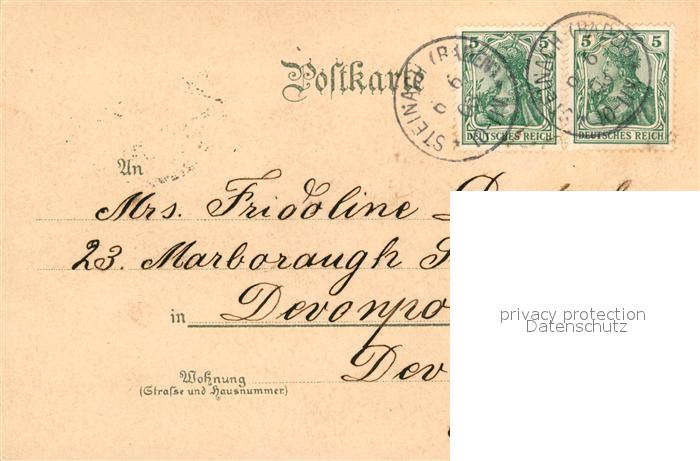 Postkarte
5 5
5 5
DEUTSCHES REICH
DEUTSCHES REICH
STEINACH (BADEN)
An
Mrs. Fridoline
23. Marboraugh
in Devonpo
Dev
Wohnung
(Straſse und Hausnummer)
privacy protection
Datenschutz